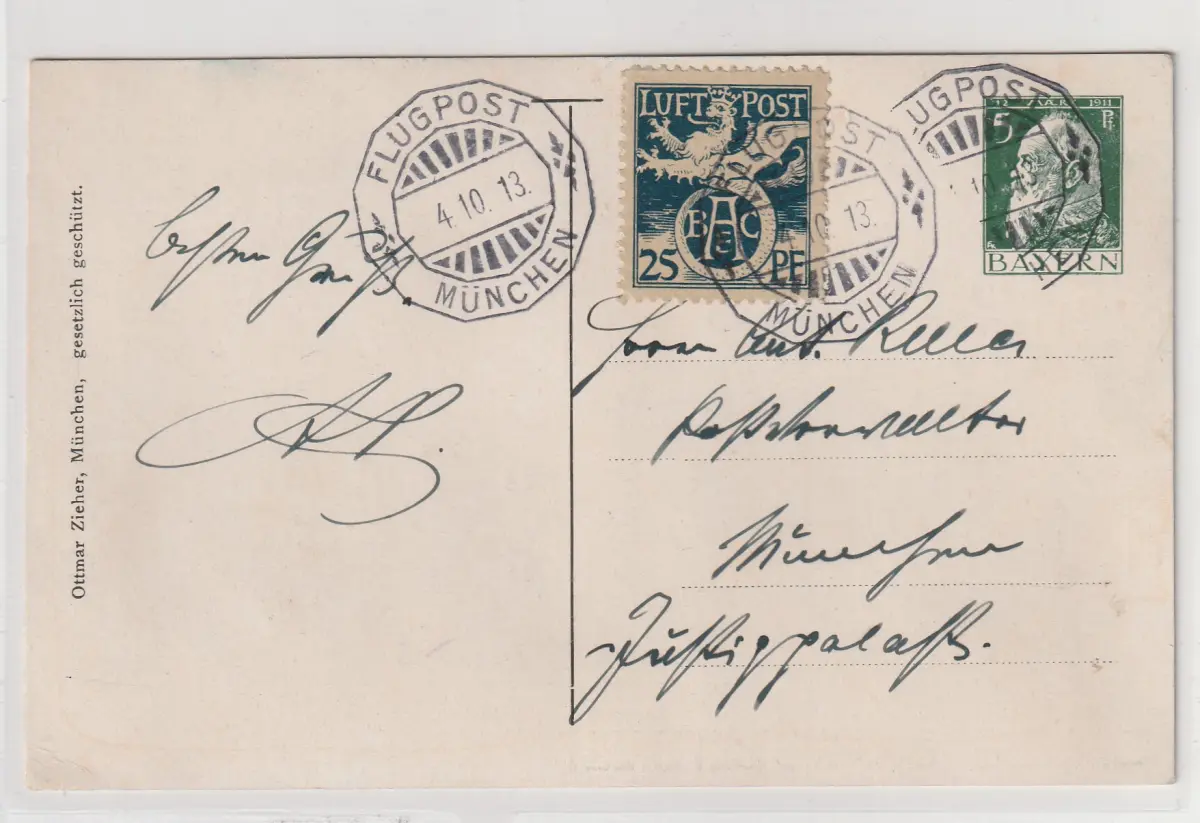 Ottmar Zieher, München, gesetzlich geschützt.
FLUGPOST
4.10.13.
MÜNCHEN
LUFT POST
BAC
25 PF
FLUGPOST
4.10.13.
MÜNCHEN
FLUGPOST
10.13
12. MÄRZ 1911
5 Pf
BAYERN
besten Gruß.
Herrn Ant.
Postverwalter
München
Justizpalast.